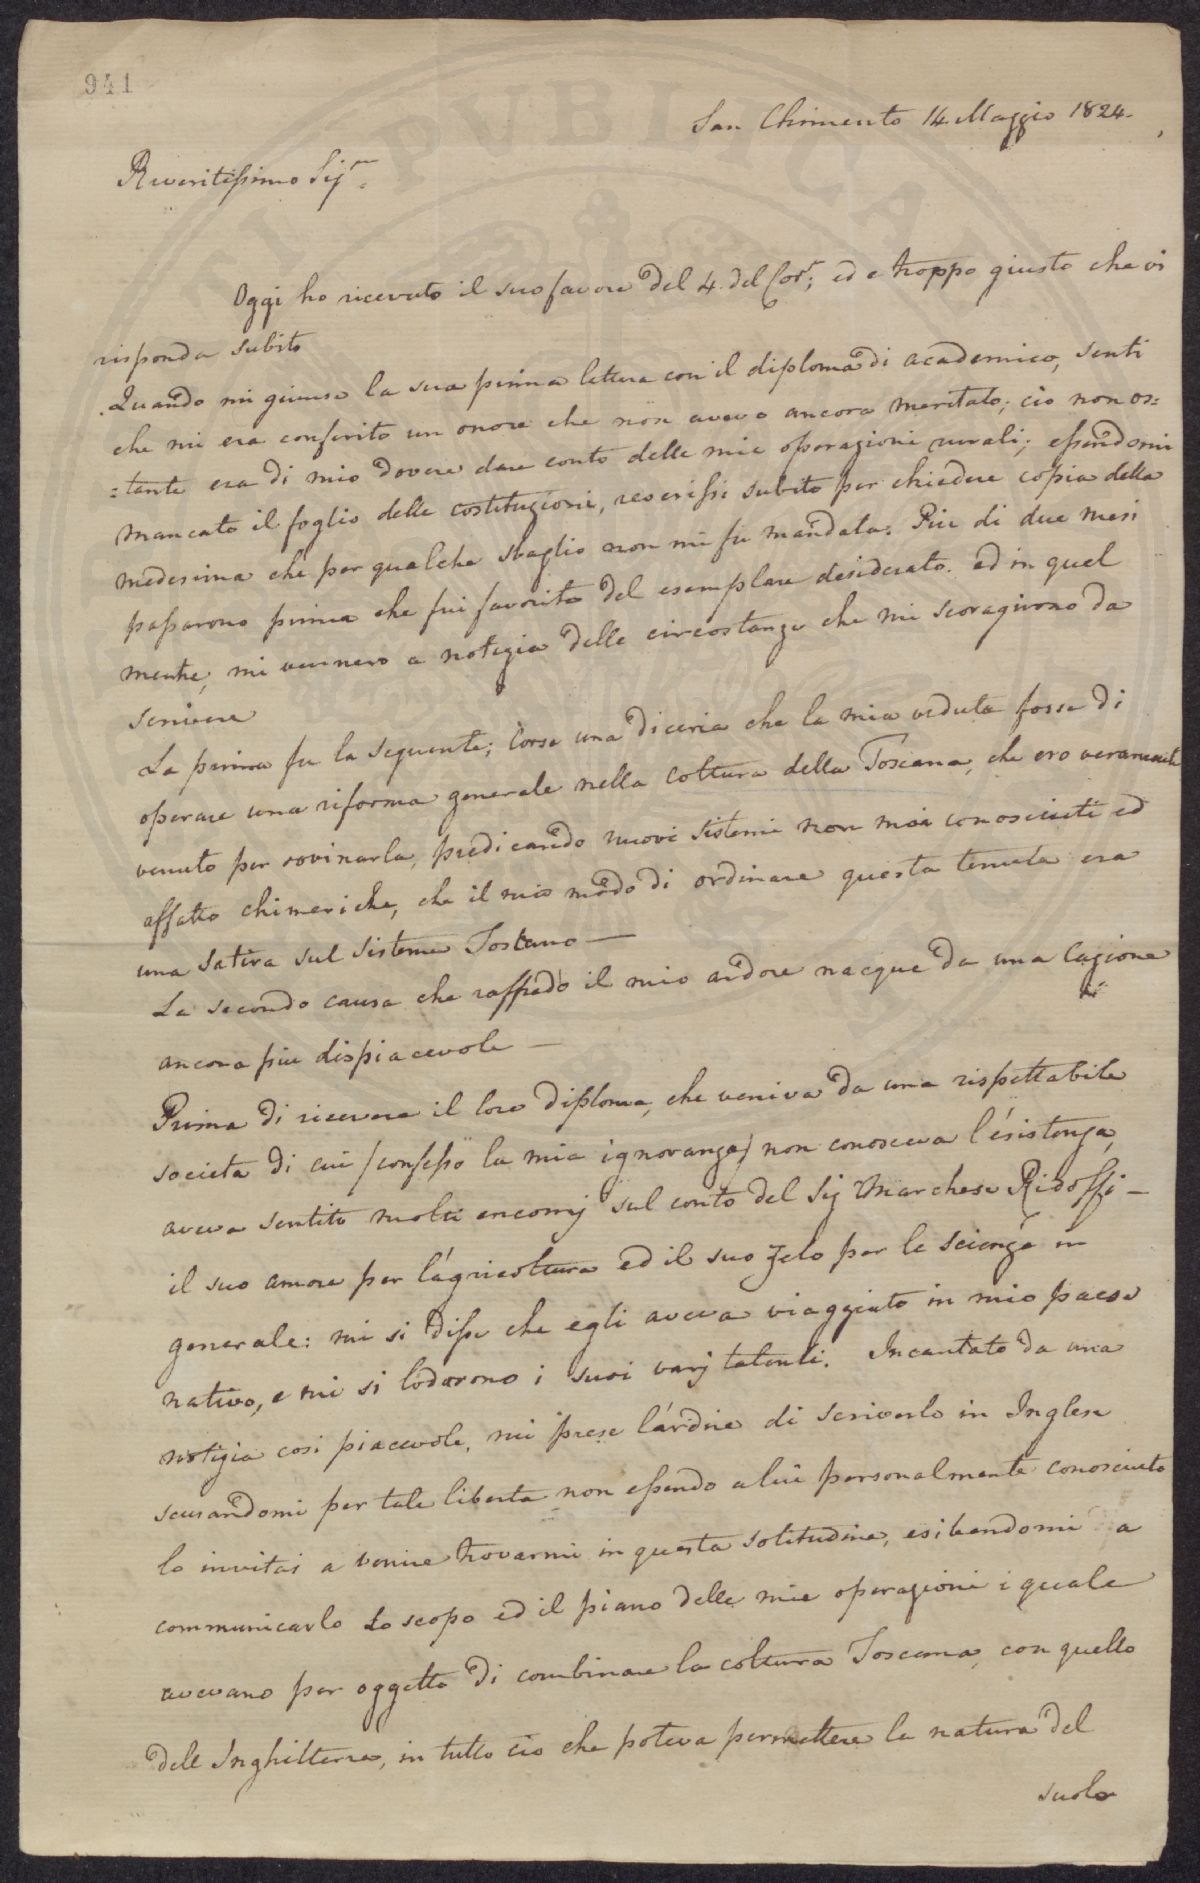 941
San Chimento 14 Maggio 1824.
Riveritissimo Sigre
Oggi ho ricevuto il suo favore del 4. del Corr; ed e troppo giusto che vi
risponda subito
Quando mi giunse la sua prima lettera con il diploma di academico, senti
che mi era conferito un onore che non avevo ancora meritato; cio non os=
=tante era di mio dovere dare conto delle mie operazioni rurali; essendomi
mancato il foglio delle costituzioni, rescrissi subito per chiedere copia della
medesima che per qualche sbaglio non mi fu mandata. Piu di due mesi
passarono prima che fui favorito del esemplare desiderato. ed in quel
mentre, mi vennero a notizia delle circostanze che mi scoragirono da
scrivere
La prima fu la seguente; corse una diceria che la mia veduta fosse di
operare una riforma generale nella coltura della Toscana, che ero veramente
venuto per rovinarla, predicando nuovi sistemi non mai conosciuti ed
affatto chimeriche, che il mio modo di ordinare questa tenuta era
una satira sul sistema Toscano —
La secondo causa che raffredò il mio ardore nacque da una Cagione
ancora piu dispiacevole —
Prima di ricevere il loro diploma, che veniva da una rispettabile
societa di cui (confesso la mia ignoranza) non conosceva l'esistenza,
aveva sentito molti encomj sul conto del Sig Marchese Ridolfi —
il suo amore per l'agricoltura ed il suo zelo per le scienze in
generale: mi si disse che egli aveva viaggiato in mio paese
nativo, e mi si lodarono i suoi varj talenti. Incantato da una
notizia cosi piacevole, mi prese l'ardire di scriverlo in Inglese
scusandomi per tale liberta non essendo a lui personalmente conosciuto
lo invitai a venire trovarmi in questa solitudine, esibendomi a
communicarlo lo scopo ed il piano delle mie operazioni i quale
avevano per oggetto di combinare la coltura Toscana, con quello
dell Inghilterra, in tutto cio che poteva permettere la natura del
suolo